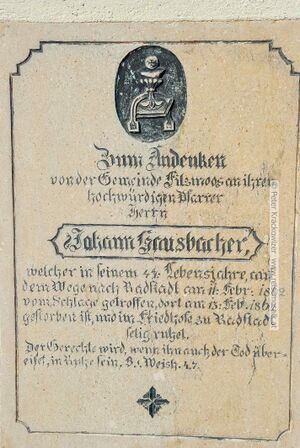 Zum Andenken
von der Gemeinde Filzmoos an ihren
hochwürdigen Pfarrer
Herrn
Johann Hausbacher,
welcher in seinem 44. Lebensjahre, an
dem Wege nach Radstadt am 11. Febr. 186
vom Schlage getroffen, dort am 13. Feb. 186
gestorben ist, und im Friedhofe zu Radstadt
selig ruhet.
Der Gerechte wird, wenn ihn auch der Tod über-
eilet, in Ruhe sein. B. Weish. 4.7.
© Peter Krackowizer